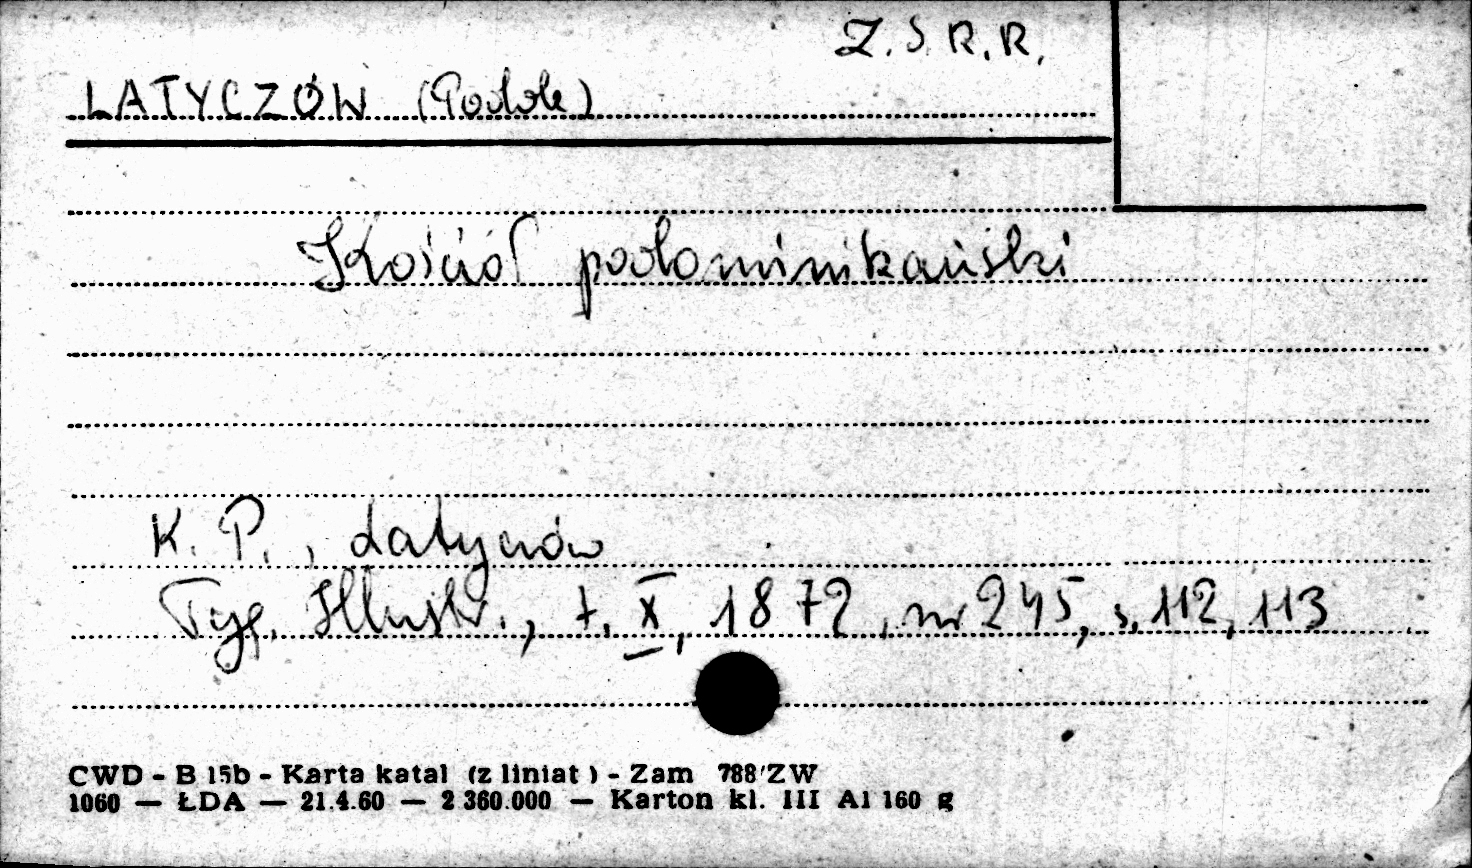 Z.S.R.R.
LATYCZÓW (Podole)
Kościół podominikański
K. P., Latyczów
Tyg. Illustr., t. X, 1872, nr 245, s. 112, 113
CWD - B 15b - Karta katal (z liniat) - Zam 788/ZW
1060 — ŁDA — 21.4.60 — 2 360.000 — Karton kl. III A1 160 g